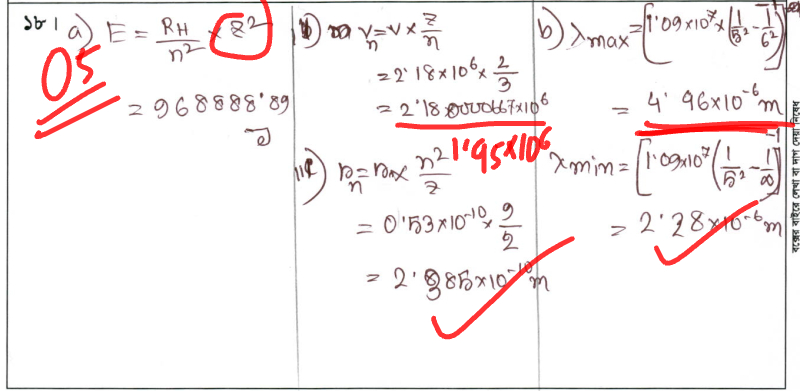 ১৮।
a) E = RH/n² × Z²
= 968888.89 J
05
ii) Vn = V × Z/n
= 2.18×10⁶ × 2/3
= 2.180000667×10⁶
1.95×10⁶
iii) rn = r × n²/Z
= 0.53×10⁻¹⁰ × 9/2
= 2.385×10⁻¹⁰ m
b) λmax = [1.09×10⁷×(1/5² - 1/6²)]⁻¹
= 4.96×10⁻⁶ m
λmin = [1.09×10⁷ (1/5² - 1/∞)]⁻¹
= 2.28×10⁻⁶ m
বক্সের বাইরে লেখা বা দাগ দেয়া নিষেধ